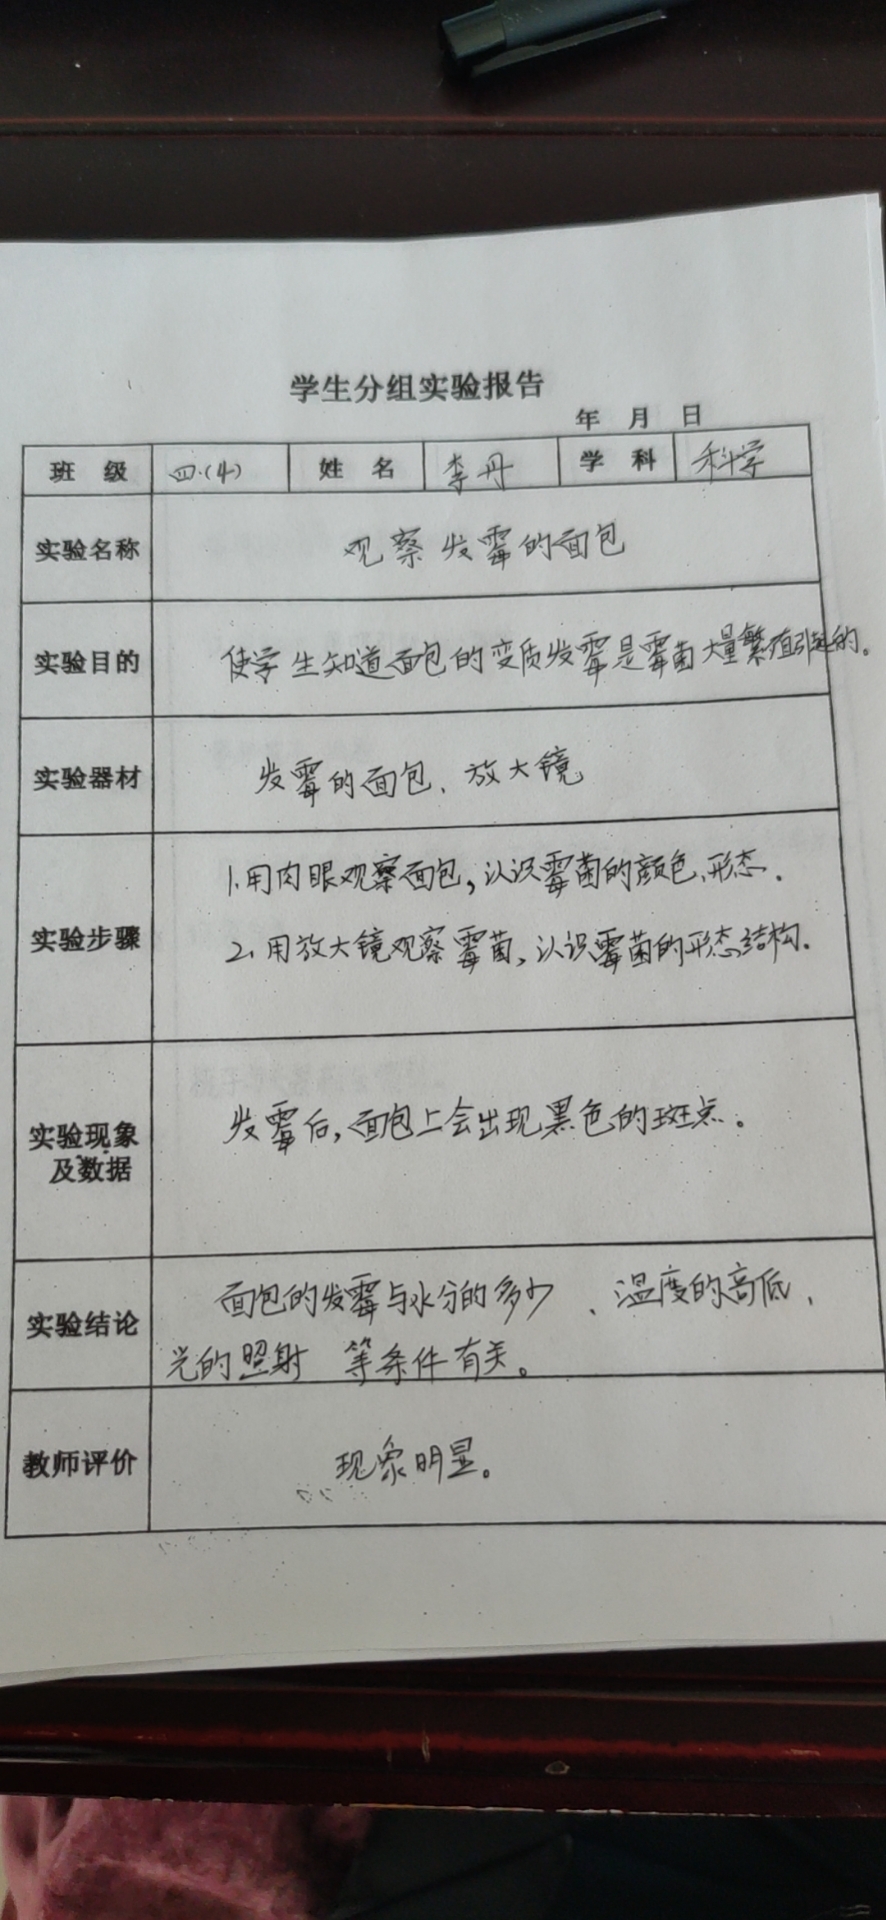 学生分组实验报告
年 月 日
班 级 四.(4) 姓 名 李丹 学 科 科学
实验名称 观察发霉的面包
实验目的 使学生知道面包的变质发霉是霉菌大量繁殖引起的。
实验器材 发霉的面包、放大镜
实验步骤
1.用肉眼观察面包,认识霉菌的颜色、形态.
2、用放大镜观察霉菌,认识霉菌的形态结构.
实验现象
及数据
发霉后,面包上会出现黑色的斑点。
实验结论
面包的发霉与水分的多少、温度的高低、
光的照射 等条件有关。
教师评价 现象明显。